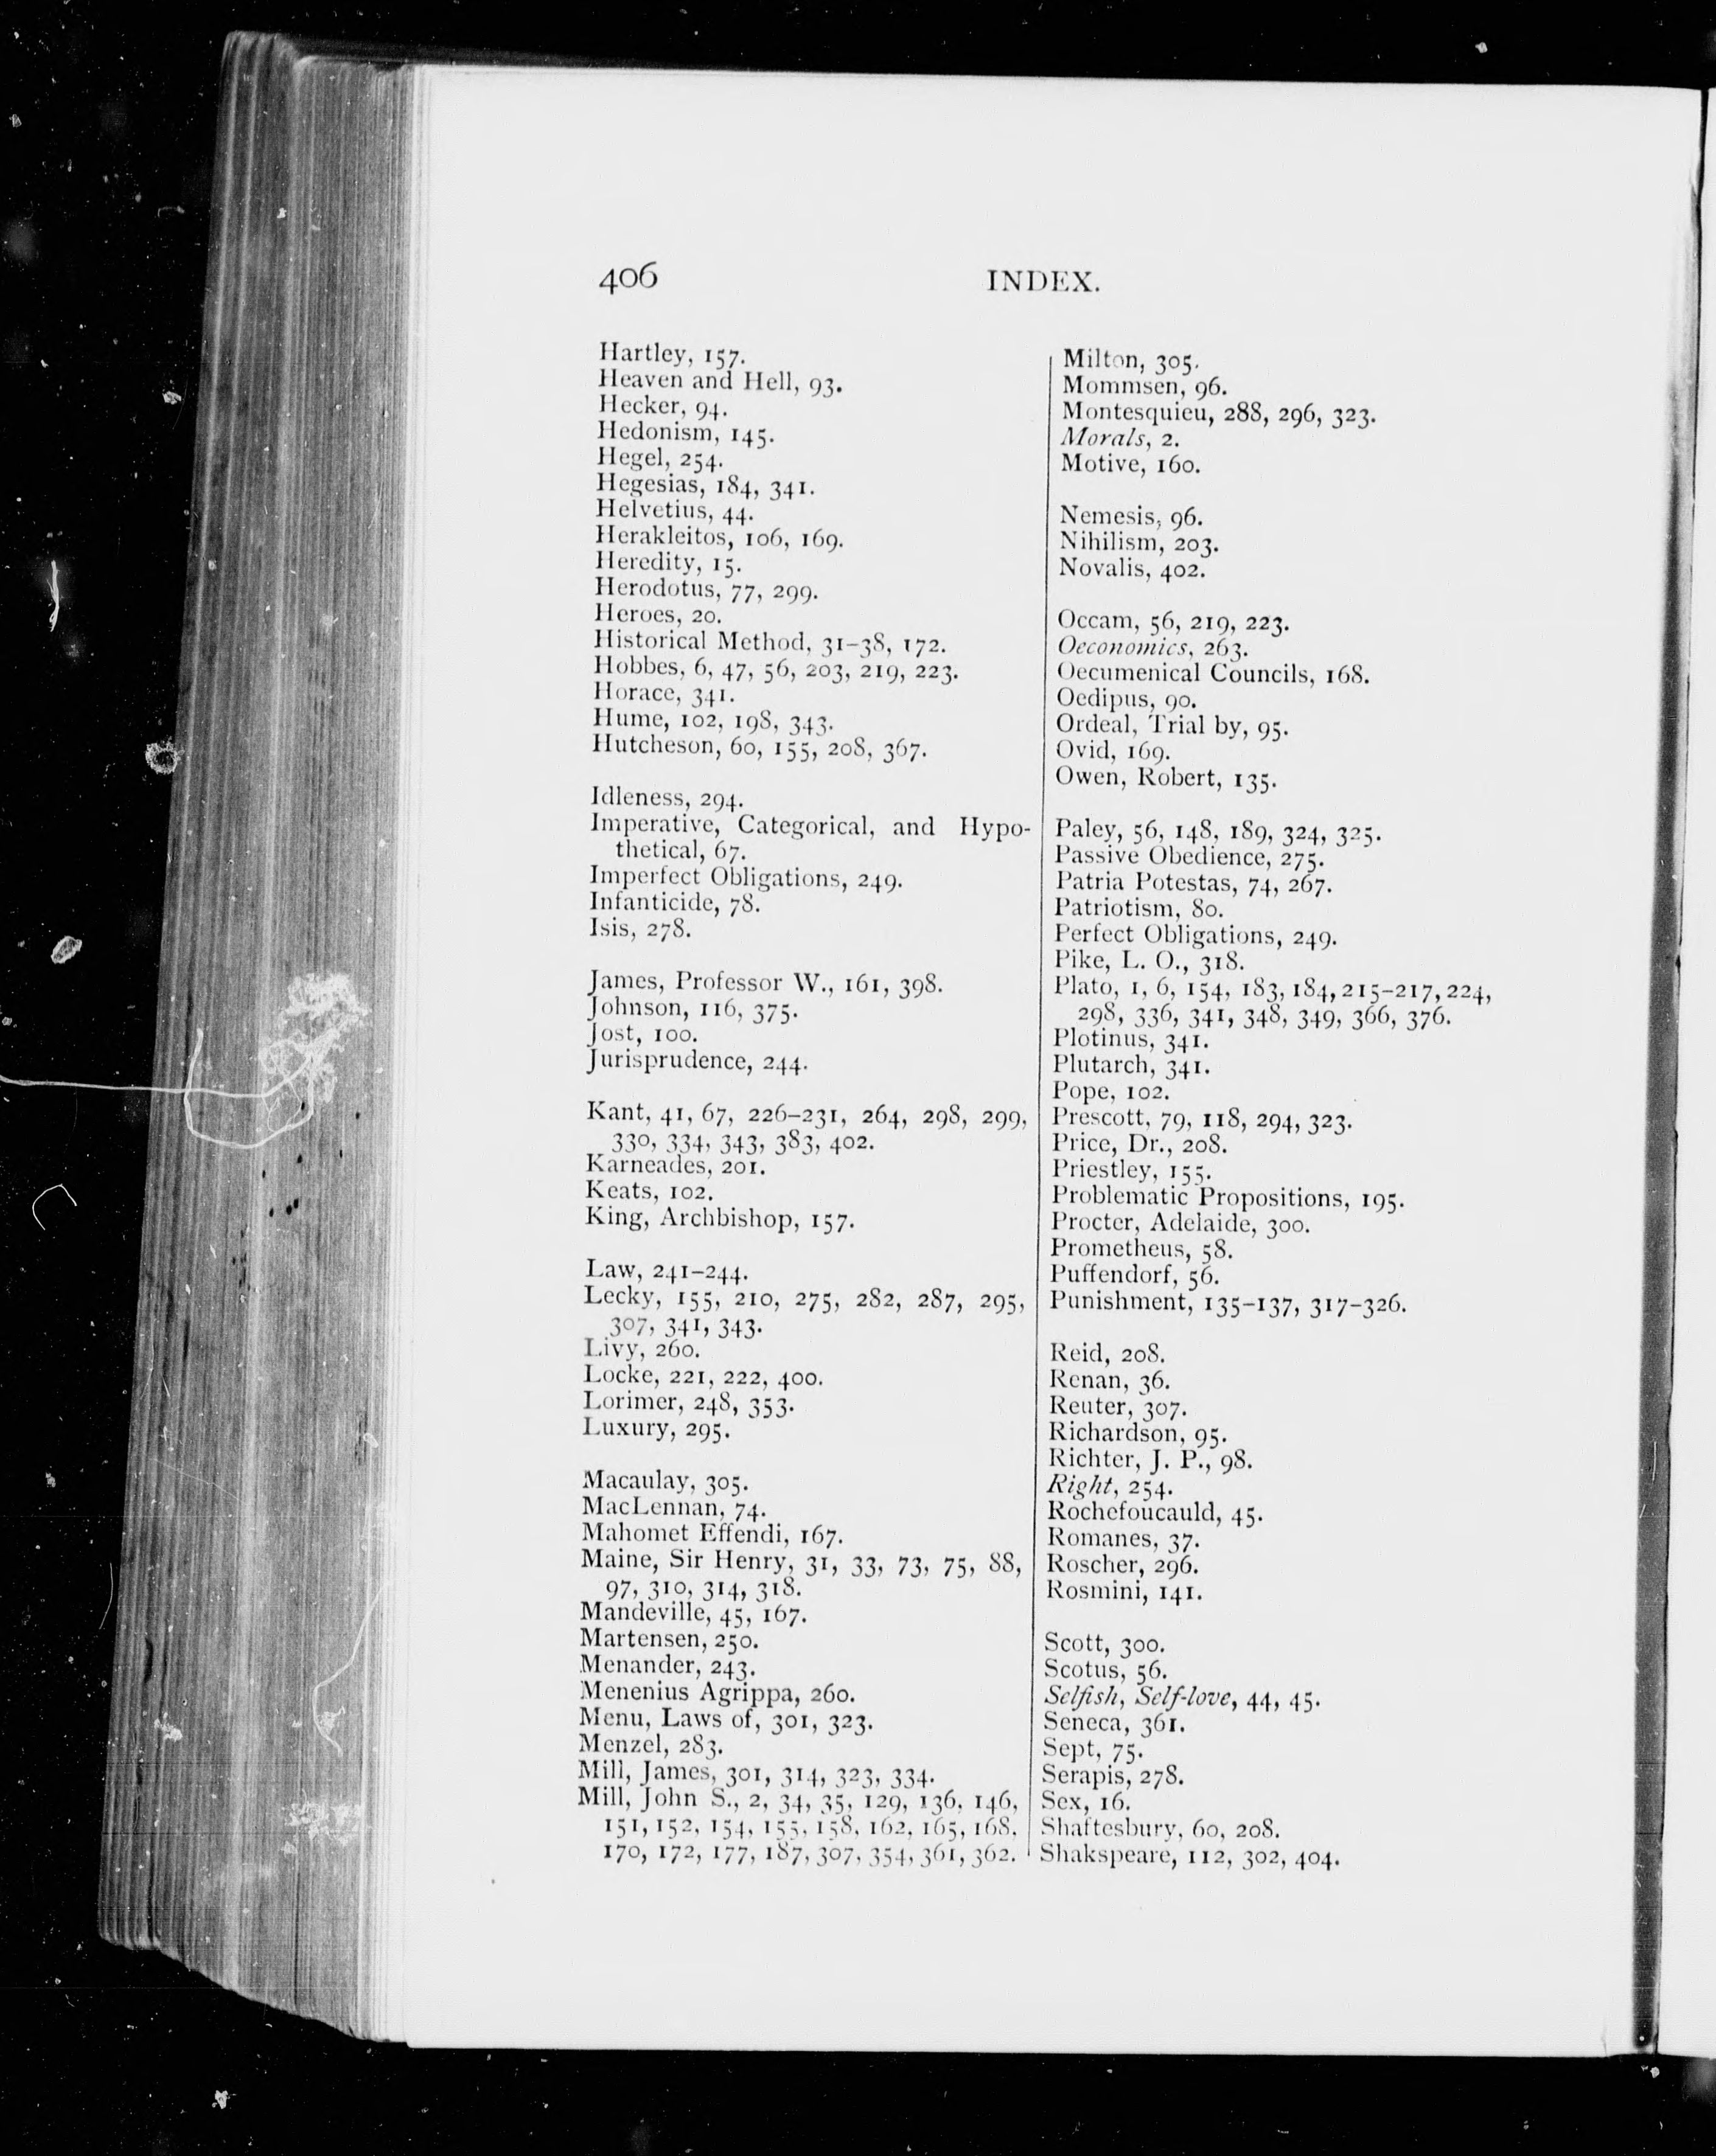 406
INDEX.
Hartley, 157.
Heaven and Hell, 93.
Hecker, 94.
Hedonism, 145.
Hegel, 254.
Hegesias, 184, 341.
Helvetius, 44.
Herakleitos, 106, 169.
Heredity, 15.
Herodotus, 77, 299.
Heroes, 20.
Historical Method, 31–38, 172.
Hobbes, 6, 47, 56, 203, 219, 223.
Horace, 341.
Hume, 102, 198, 343.
Hutcheson, 60, 155, 208, 367.
Idleness, 294.
Imperative, Categorical, and Hypo-
thetical, 67.
Imperfect Obligations, 249.
Infanticide, 78.
Isis, 278.
James, Professor W., 161, 398.
Johnson, 116, 375.
Jost, 100.
Jurisprudence, 244.
Kant, 41, 67, 226–231, 264, 298, 299,
330, 334, 343, 383, 402.
Karneades, 201.
Keats, 102.
King, Archbishop, 157.
Law, 241–244.
Lecky, 155, 210, 275, 282, 287, 295,
307, 341, 343.
Livy, 260.
Locke, 221, 222, 400.
Lorimer, 248, 353.
Luxury, 295.
Macaulay, 305.
MacLennan, 74.
Mahomet Effendi, 167.
Maine, Sir Henry, 31, 33, 73, 75, 88,
97, 310, 314, 318.
Mandeville, 45, 167.
Martensen, 250.
Menander, 243.
Menenius Agrippa, 260.
Menu, Laws of, 301, 323.
Menzel, 283.
Mill, James, 301, 314, 323, 334.
Mill, John S., 2, 34, 35, 129, 136, 146,
151, 152, 154, 155, 158, 162, 165, 168,
170, 172, 177, 187, 307, 354, 361, 362.
Milton, 305.
Mommsen, 96.
Montesquieu, 288, 296, 323.
Morals, 2.
Motive, 160.
Nemesis, 96.
Nihilism, 203.
Novalis, 402.
Occam, 56, 219, 223.
Oeconomics, 263.
Oecumenical Councils, 168.
Oedipus, 90.
Ordeal, Trial by, 95.
Ovid, 169.
Owen, Robert, 135.
Paley, 56, 148, 189, 324, 325.
Passive Obedience, 275.
Patria Potestas, 74, 267.
Patriotism, 80.
Perfect Obligations, 249.
Pike, L. O., 318.
Plato, 1, 6, 154, 183, 184, 215–217, 224,
298, 336, 341, 348, 349, 366, 376.
Plotinus, 341.
Plutarch, 341.
Pope, 102.
Prescott, 79, 118, 294, 323.
Price, Dr., 208.
Priestley, 155.
Problematic Propositions, 195.
Procter, Adelaide, 300.
Prometheus, 58.
Puffendorf, 56.
Punishment, 135–137, 317–326.
Reid, 208.
Renan, 36.
Reuter, 307.
Richardson, 95.
Richter, J. P., 98.
Right, 254.
Rochefoucauld, 45.
Romanes, 37.
Roscher, 296.
Rosmini, 141.
Scott, 300.
Scotus, 56.
Selfish, Self-love, 44, 45.
Seneca, 361.
Sept, 75.
Serapis, 278.
Sex, 16.
Shaftesbury, 60, 208.
Shakspeare, 112, 302, 404.